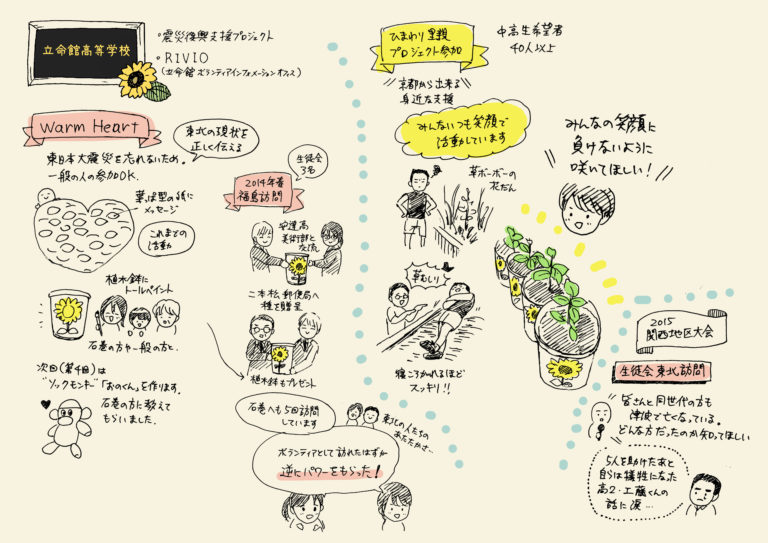 立命館高等学校
・震災復興支援プロジェクト
・RIVIO
(立命館 ボランティアインフォメーション オフィス)
Warm Heart
東北の現状を
正しく伝える
東日本大震災を忘れないため。
一般の人の参加OK.
葉っぱ型の紙に
メッセージ
これまでの
活動
植木鉢に
トールペイント
石巻の方や一般の方と.
次回(第4回)は
"ソックモンキー"「おのくん」を作ります。
石巻の方に教えて
もらいました.
生徒会
3名
2014年春
福島訪問
安達高
美術部と
交流
二本松郵便局へ
種を贈呈
植木鉢もプレゼント
石巻へも5回訪問
しています
東北の人たちの
あたたかさ…
ボランティアとして訪れたはずが
逆にパワーをもらった!
ひまわり里親
プロジェクト参加
中高生希望者
40人以上
京都から出来る
身近な支援
みんないつも笑顔で
活動しています
草ボーボーの
花だん
草むしり
寝ころがれるほど
スッキリ!!
みんなの笑顔に
負けないように
咲いてほしい!
2015
関西地区大会
生徒会東北訪問
皆さんと同世代の方も
津波で亡くなっている。
どんな方だったのか知ってほしい
5人を助けたあと
自らは犠牲になった
高2・工藤くんの
話に涙…